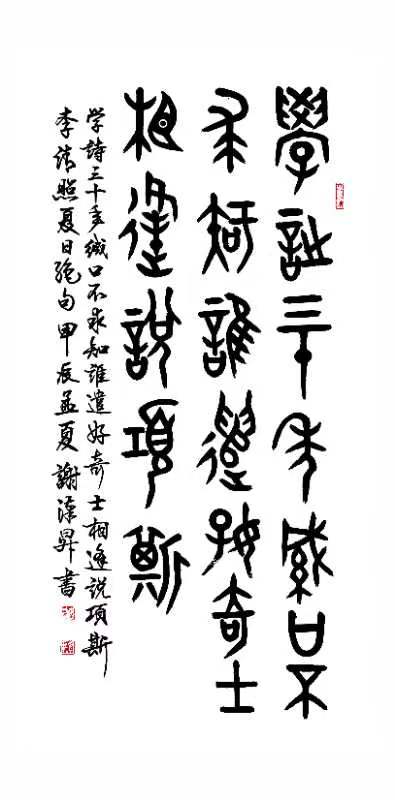 學詩三十年緘口不
求知誰遣好奇士
相逢說項斯
学詩三十年緘口不求知誰遣好奇士相逢説項斯
李清照夏日绝句甲辰孟夏謝澤昇書